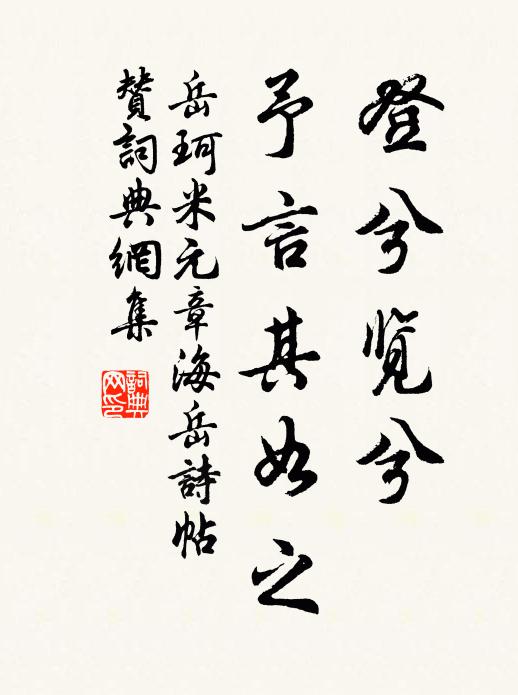 登兮览兮
予言其如之
岳珂米元章海岳詩帖
贊詞典網集
詞典网印